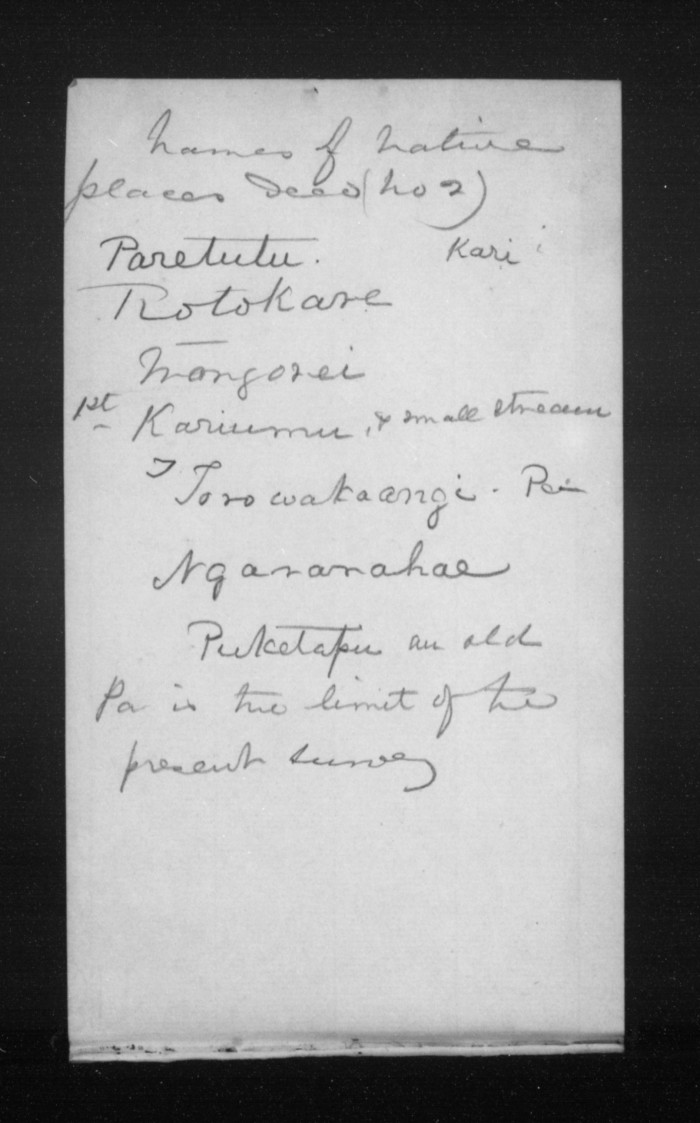 Names of native
places Deed (No 2)
Paretutu. Kari
Rotokare
Mangorei
1st Kariumu, & small stream
Torowakaangi. Pa
Ngararahae
Puketapu an old
Pa is the limit of the
present survey